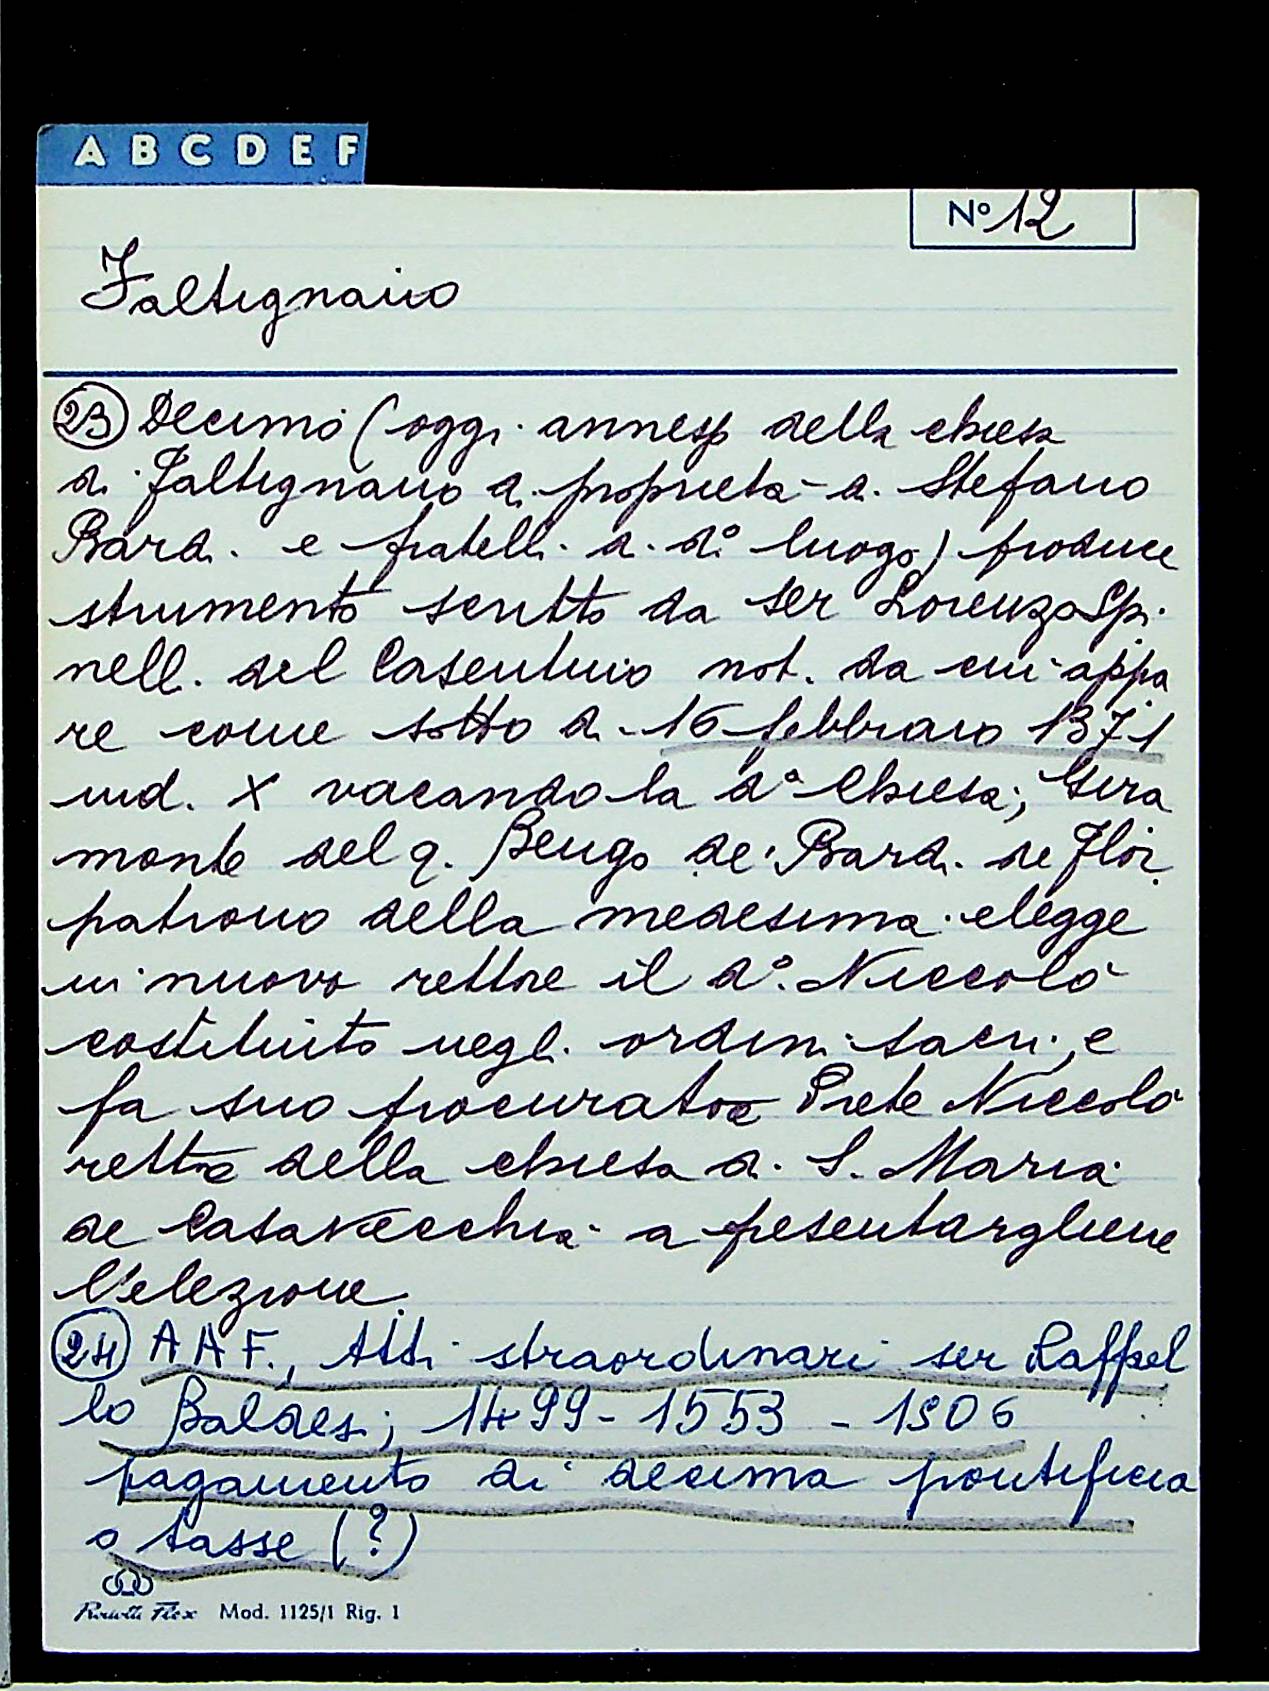 A B C D E F
N° 12
Faltignano
23) Decimo (oggi annesso della chiesa
di Faltignano di proprietà di Stefano
Bardi e fratelli di d.° luogo) produce
strumento scritto da ser Lorenzo Spi
nelli del Casentino not. da cui appa
re come sotto di 16 febbraio 1371
ind. X vacando la d.a Chiesa; Gera
monte del q. Bengo de' Bardi de Flor.
patrono della medesima elegge
in nuovo rettore il d.° Niccolò
costituito negli ordini sacri, e
fa suo procuratore Prete Niccolò
rettore della chiesa di S. Maria
de Casavecchia a presentargliene
l'elezione.
24) A A F., Atti straordinari ser Raffael
lo Baldesi; 1499-1553 - 1506
pagamento di decima pontificia
o tasse (?)
Mod. 1125/1 Rig. 1